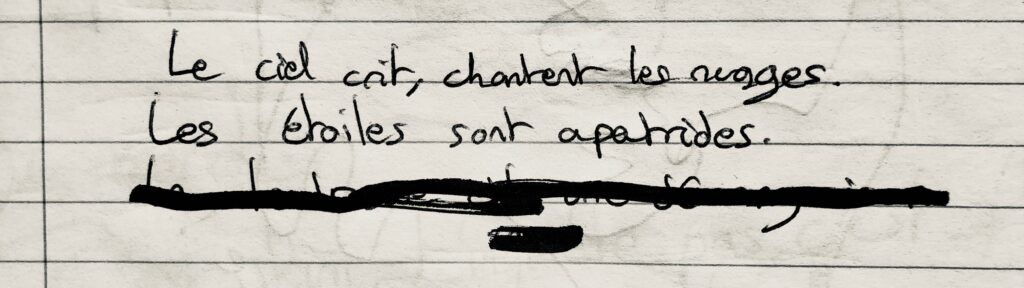 Le ciel crit, chantent les nuages.
Les étoiles sont apatrides.